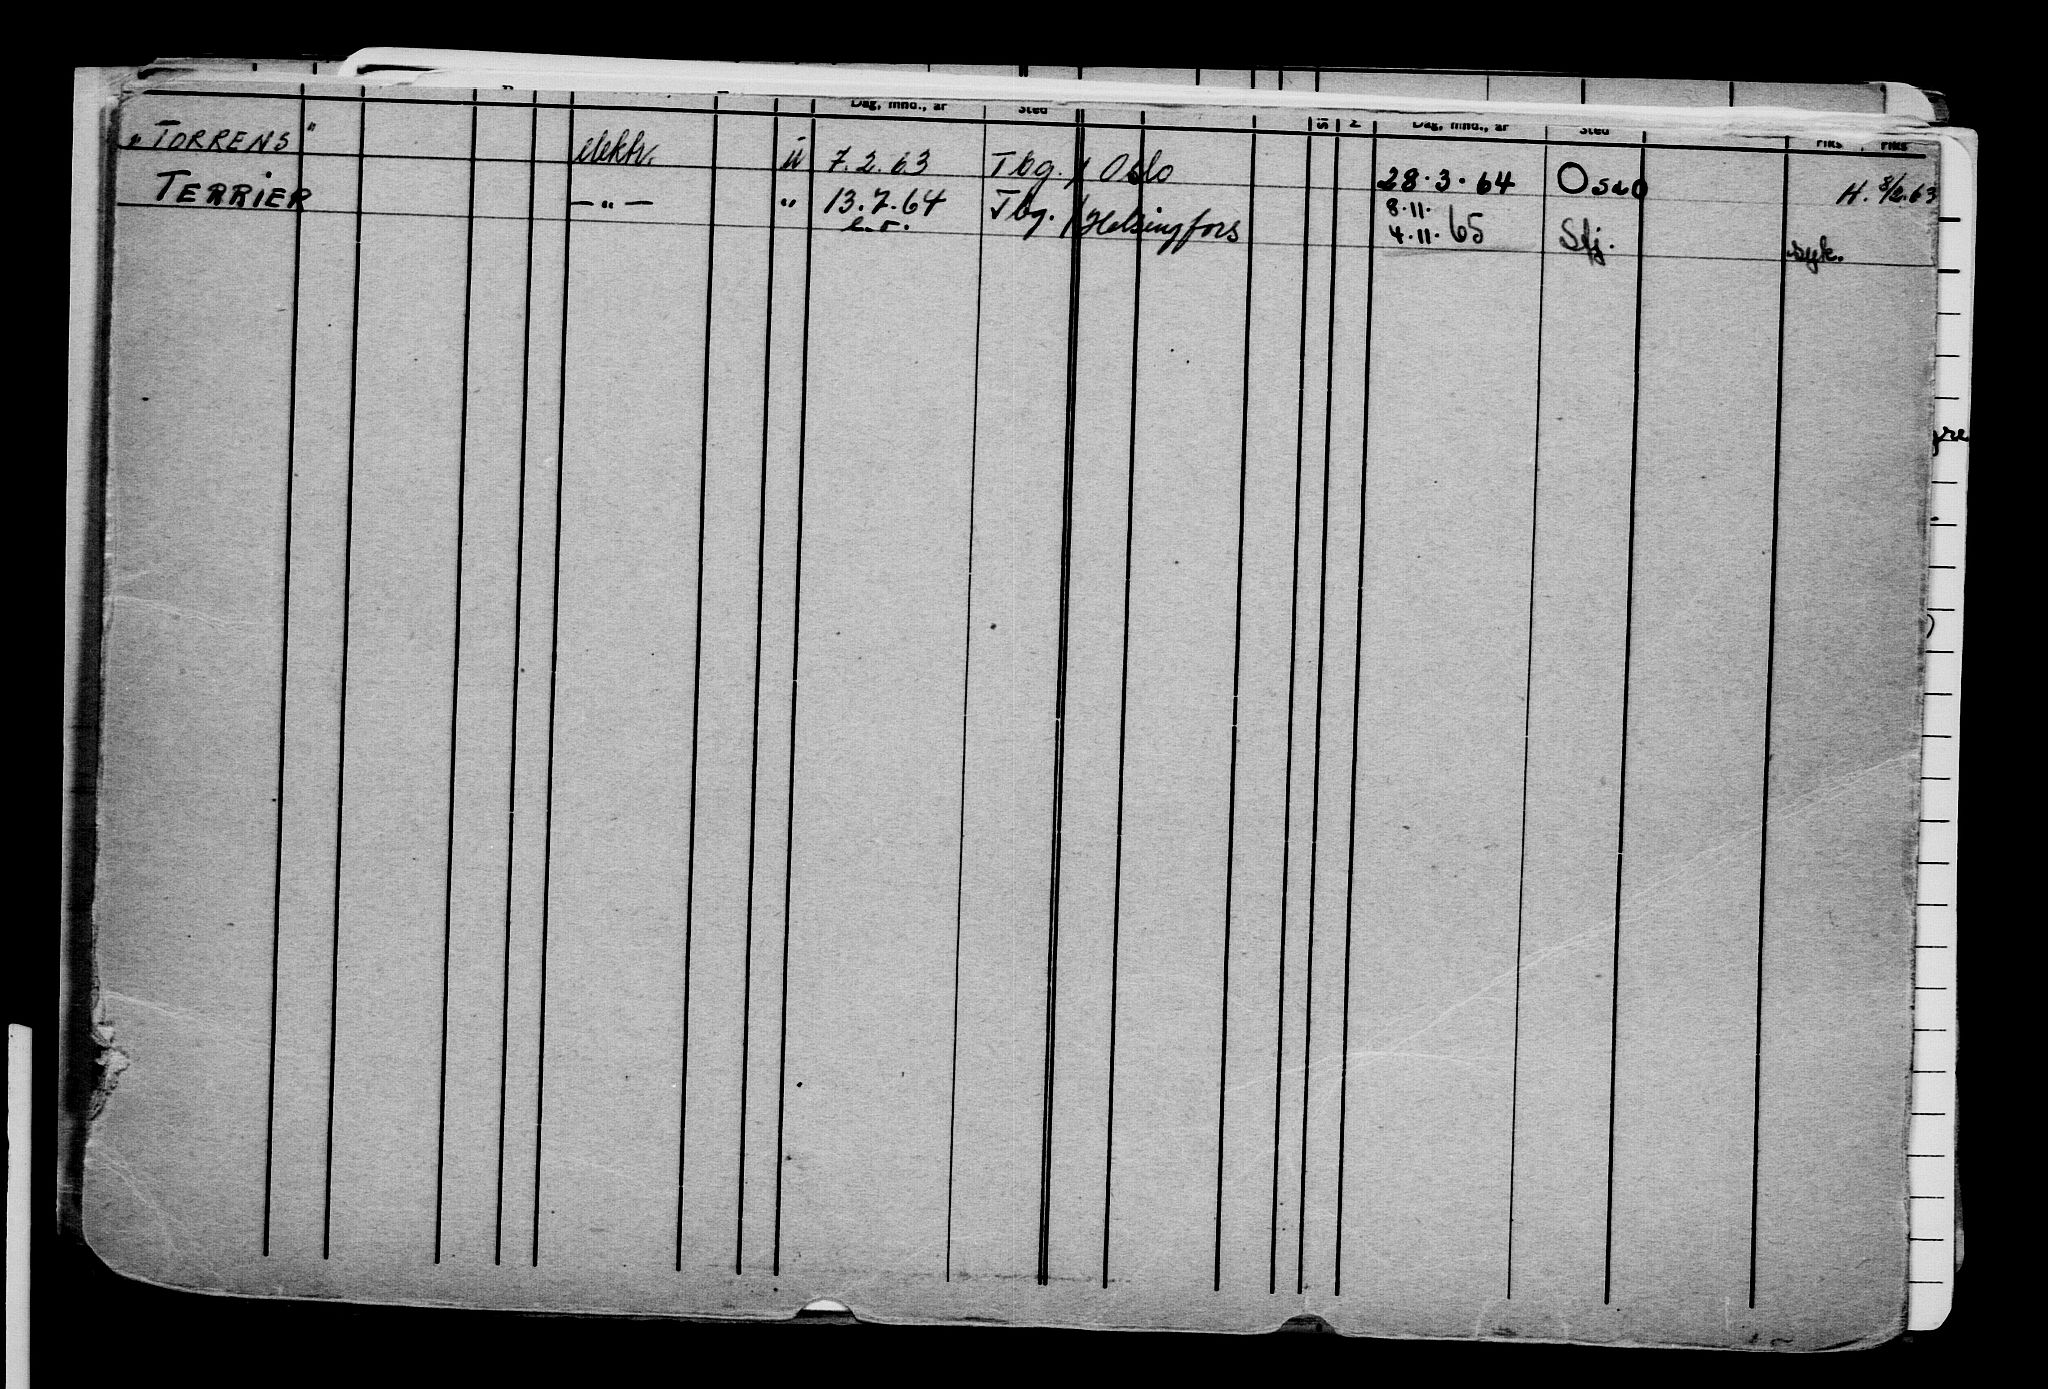 Dag, mnd., år Sted Dag, mnd., år Sted
„TORRENS" elektr. u 7.2.63 Tbg. / Oslo 28.3.64 OSLO H. 8/2.63
TERRIER —„— " 13.7.64 Tbg. / Helsingfors 8.11.
4.11.65 Sfj. syk.